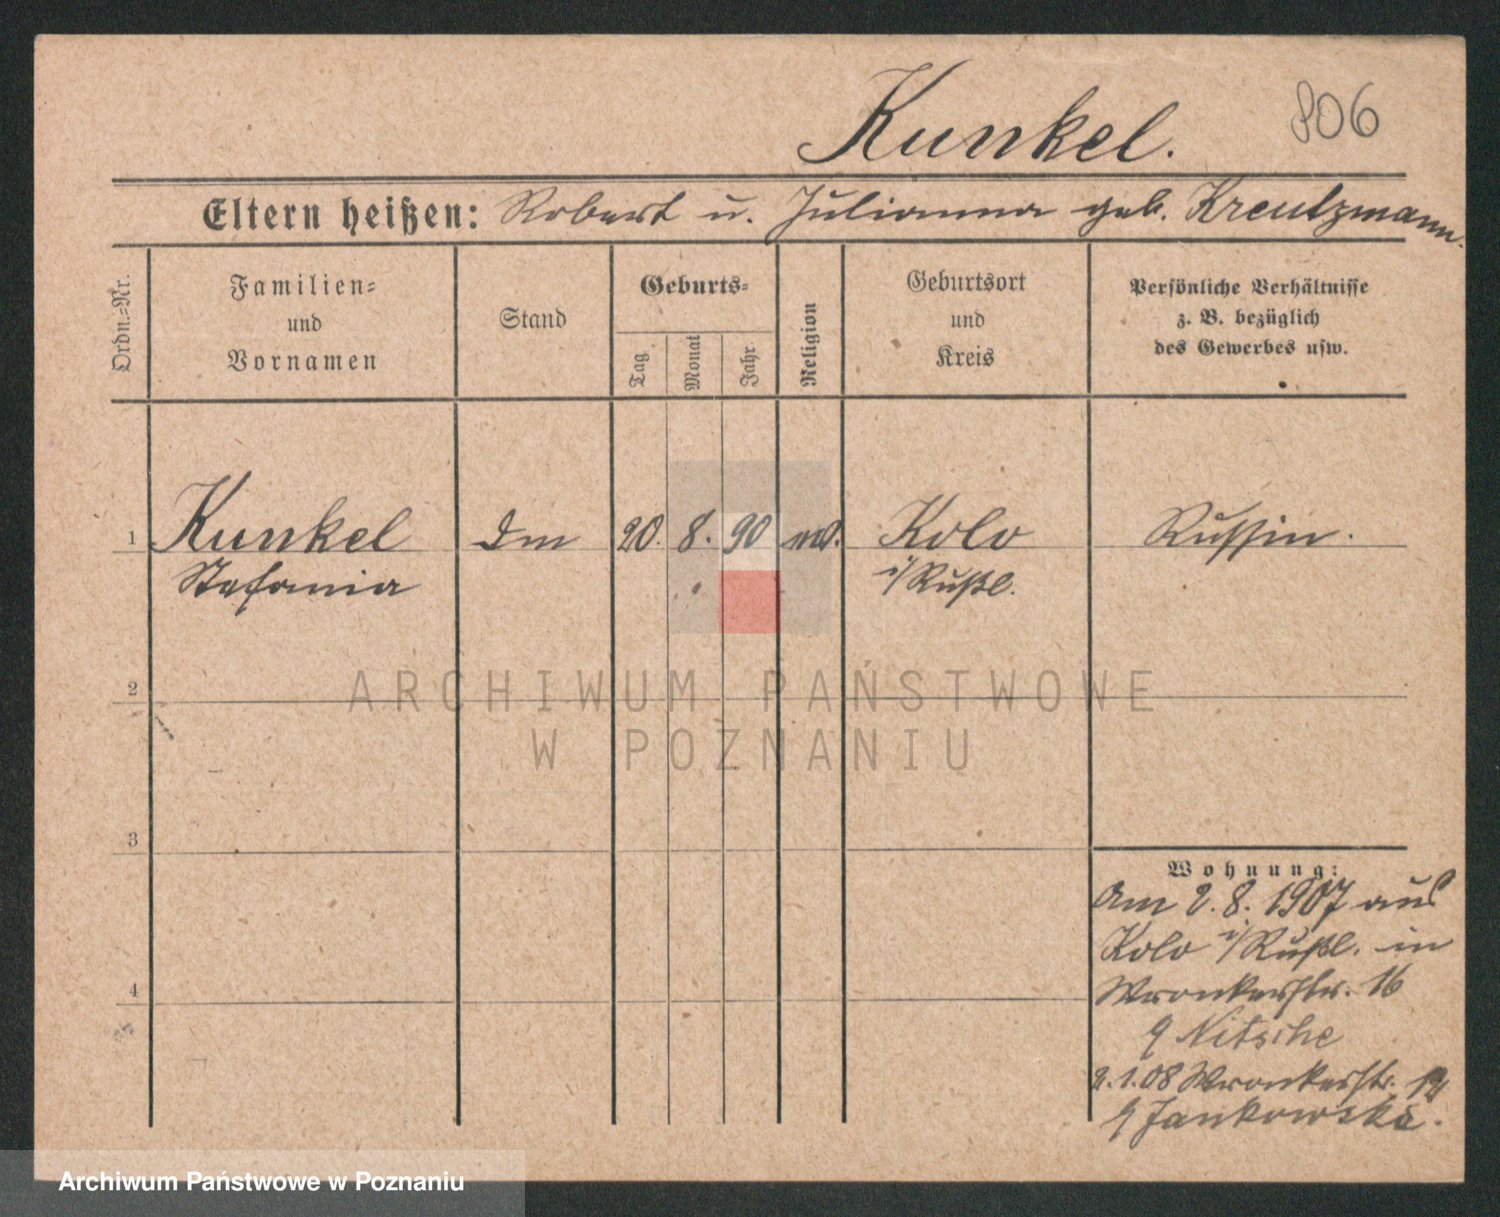 Kunkel.
806
Eltern heißen: Robert u. Julianna geb. Kreutzmann.
Ordn.=Nr.
Familien=
und
Vornamen
Stand
Geburts=
Tag
Monat
Jahr
Religion
Geburtsort
und
Kreis
Persönliche Verhältnisse
z. B. bezüglich
des Gewerbes usw.
1 Kunkel 20. 8. 90 Kolo Russin.
Stefania i/Rußl.
2
ARCHIWUM PAŃSTWOWE
W POZNANIU
3
Wohnung:
Am 2. 8. 1907 aus
Kolo i/Rußl. in
4 Wronkerstr. 16
Nitsche
2.1.08 Wronkerstr.
Jankowska.
Archiwum Państwowe w Poznaniu